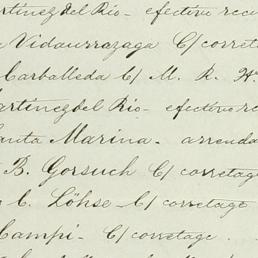 rtinez del Rio - efectivo reci
Vidaurrazaga C/ corretaj
Carballeda C/ M. R.
artinez del Rio - efectivo re
anta Marina - arrenda
B. Gorsuch C/ corretage
C. Löhse - C/ corretage
Campi - C/ corretage.